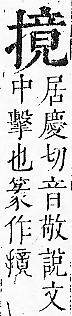 摬
居慶切音敬說文
中擊也篆作